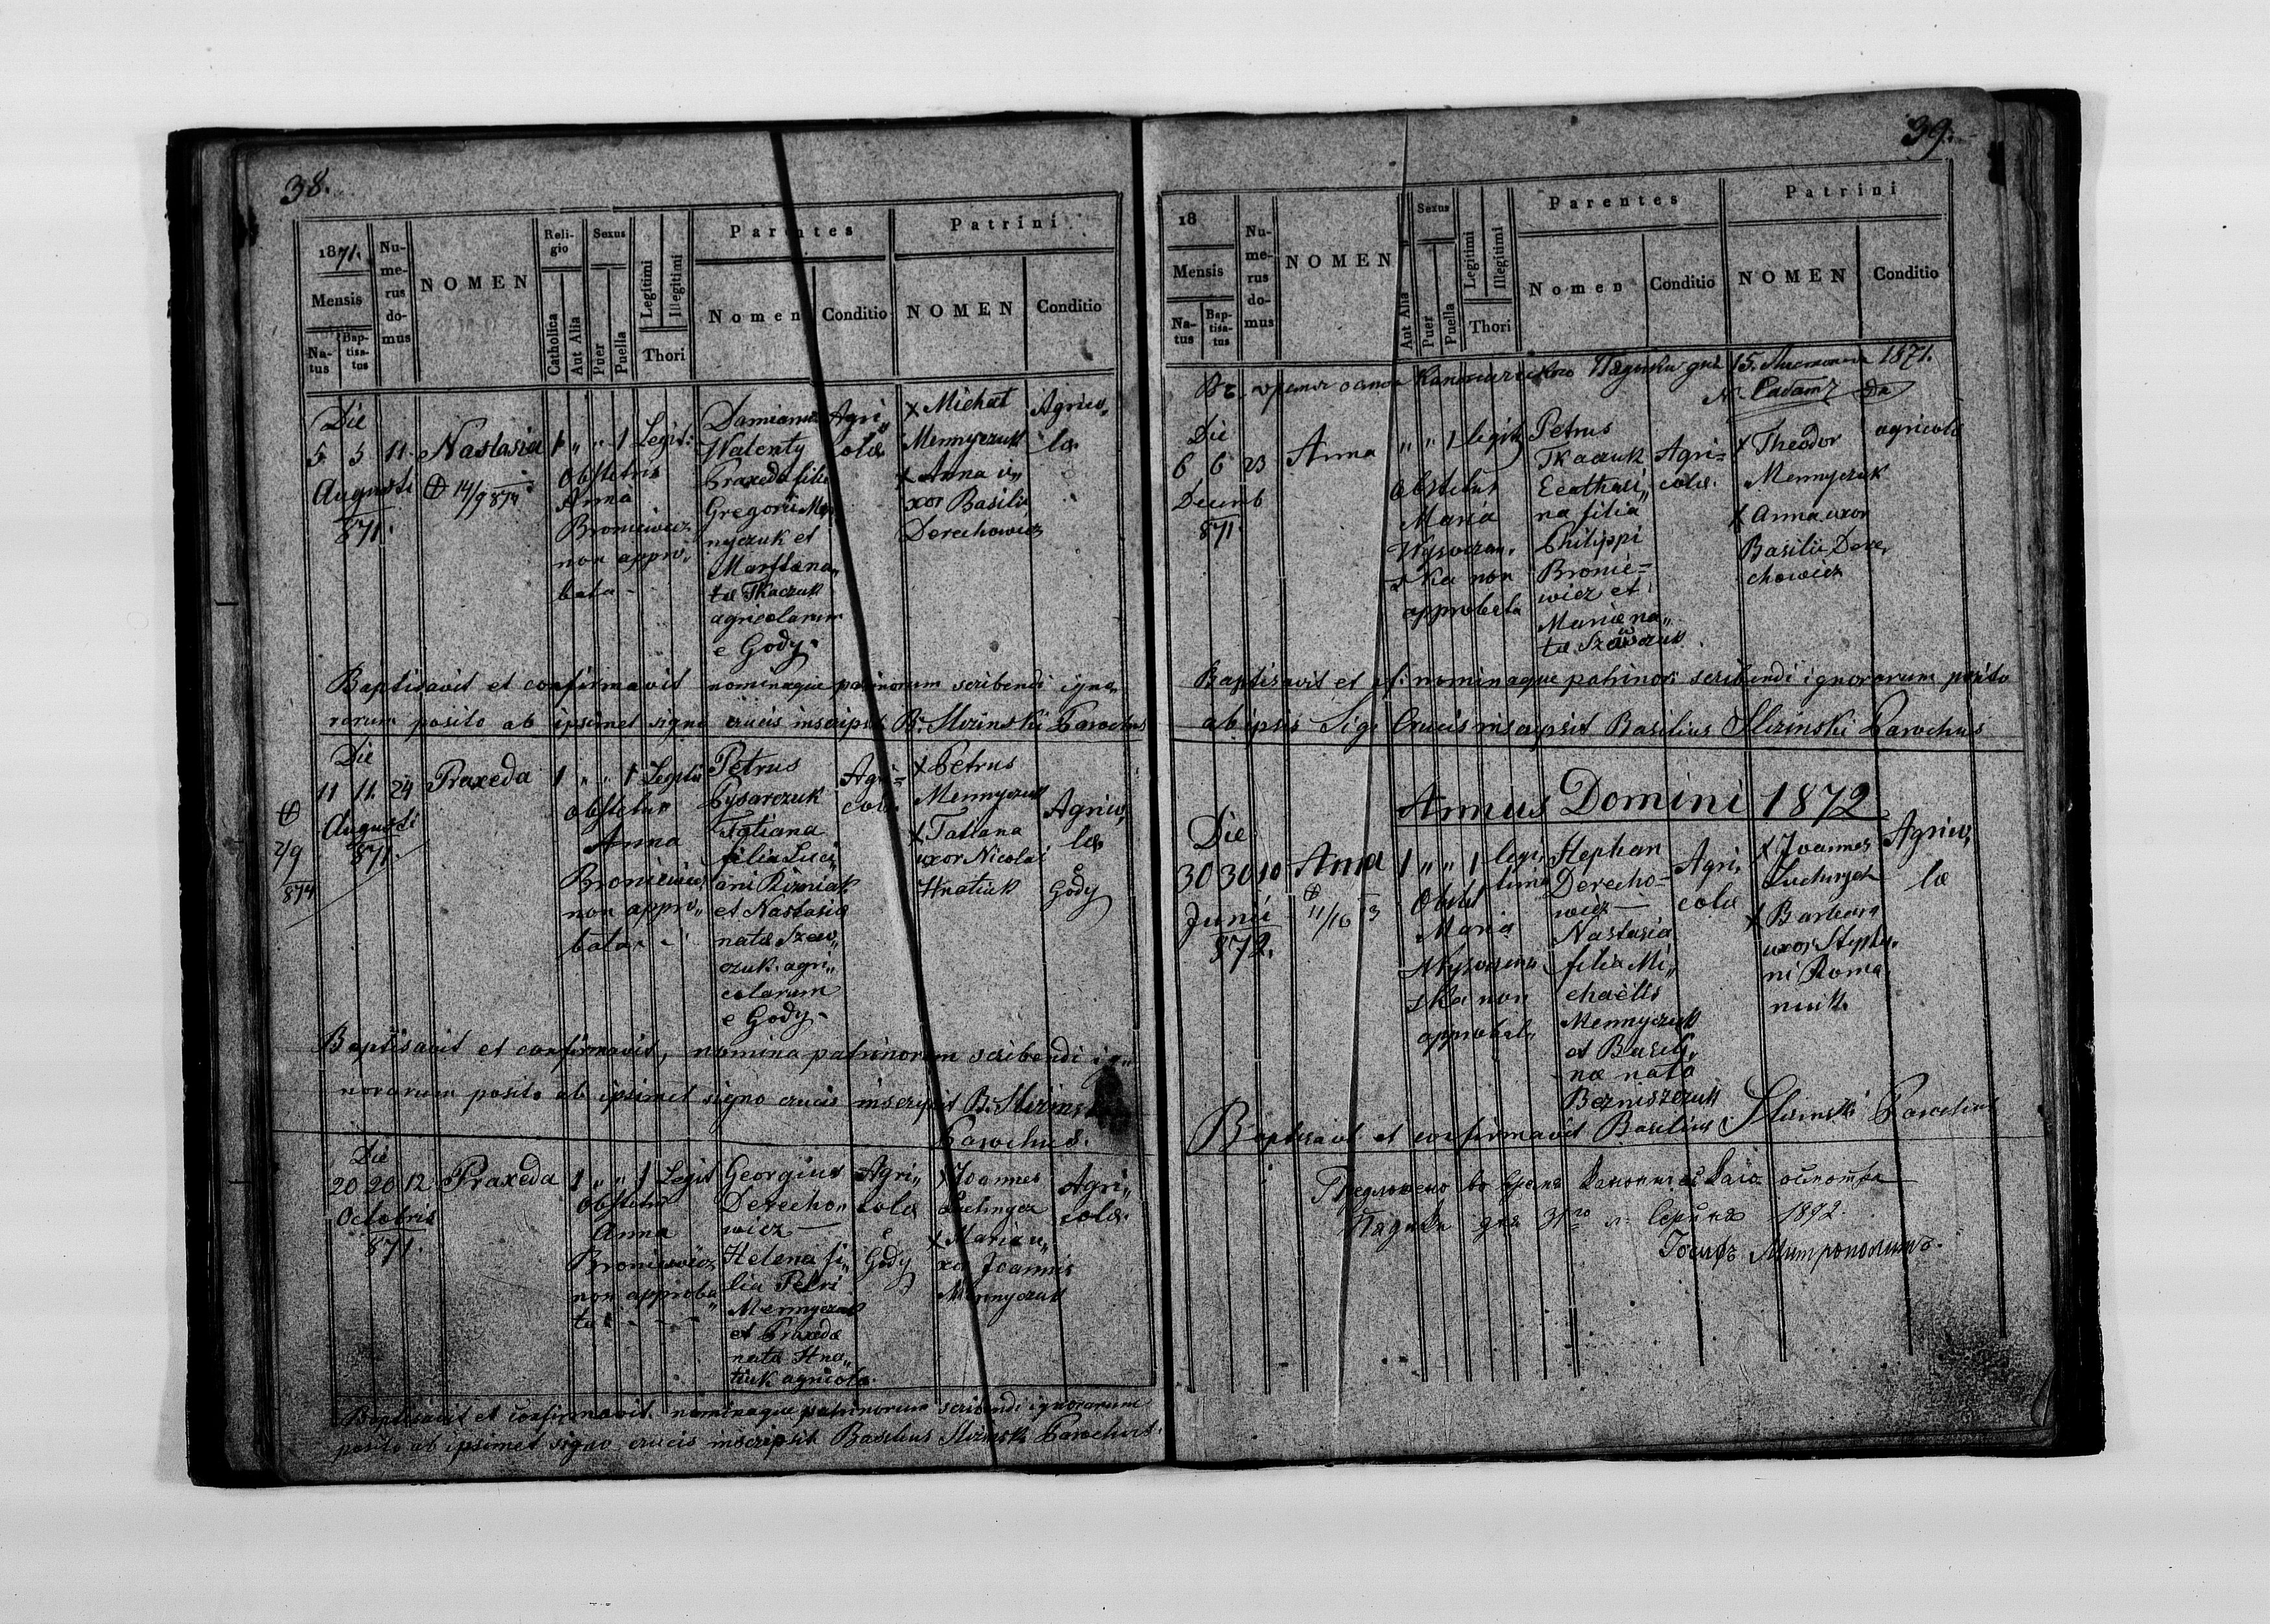 38.
1871.
Mensis
Natus
Baptisatus
Numerus domus
NOMEN
Religio
Catholica
Aut Alia
Sexus
Puer
Puella
Legitimi
Illegitimi
Thori
Parentes
Nomen
Conditio
Patrini
NOMEN
Conditio
Die
5 5 11 Nastasia 1 " " 1 Legit:
Augusti
871.
⊕ 14/9 874
Obstetrix
Anna
Broniewicz
non appro,,
bata -
Damianus
Walenty
Praxeda filia
Gregorii Men
nyczuk et
Marthæ na,,
tæ Tkaczuk
agricolarum
e Gody.
Agri,,
colæ
x Michał
Mennyczuk
x Anna u,,
xor Basilii
Derechowicz
Agrico,,
læ
Baptisavit et confirmavit nominaque patrinorum scribendi igna
rorum posito ab ipsimet signo crucis inscripsit B. Slizinski Parochus
Die
11 11. 24 Praxeda 1 " " 1 Legit:
Augusti
871.
⊕
2/9
874
Obstetrix
Anna
Broniewicz
non appro,,
bata -
Petrus
Pysarczuk
Tatiana
filia Luci,,
ani Rizniak
et Nastasiæ
natæ Szew,,
czuk agri,,
colarum
e Gody -
Agri=
colæ
x Petrus
Mennyczuk
x Tatiana
uxor Nicolai
Hnatiuk
Agrico,,
læ
e
Gody
Baptisavit et confirmavit, nomina patrinorum scribendi ig,,
norarum posito ab ipsimet signo crucis inscripsit B. Slizinski
Parochus.
Die
20 20 12 Praxeda 1 " " 1 Legit
Octobris
871.
Obstetrix
Anna
Broniewicz
non approba
ta
Georgius
Derecho,,
wicz
Helena fi,,
lia Petri
Mennyczuk
et Praxedæ
natæ Hna,,
tiuk agricolæ.
Agri,,
colæ
e
Gody
x Joannes
x Maria u,,
xor Joannis
Mennyczuk
Agri,,
colæ.
Baptisavit et confirmavit nominaque patrinorum scribendi ignorarum
posito ab ipsimet signo crucis inscripsit Basilius Slizinski Parochus.
39.
18
Mensis
Natus
Baptisatus
Numerus domus
NOMEN
Aut Alia
Sexus
Puer
Puella
Legitimi
Illegitimi
Thori
Parentes
Nomen
Conditio
Patrini
NOMEN
Conditio
15. 1871.
Die
6 6 23 Anna " " 1 legit
Decemb
871.
Obstetrix
Maria
Wysoczan,,
ska non
approbata
Petrus
Tkaczuk
Ecathari,,
na filia
Philippi
Bronie=
wicz et
Mariæ na,,
tæ Szewczuk
Agri=
colæ.
x Theodor
Mennyczuk
x Anna uxor
Basilii Dere,
chowicz
agricolæ
Baptisavit et cf: nominaque patrinor: scribendi ignorarum posito
ab ipsis Sig: Crucis inscripsit Basilius Slizinski Parochus
Annus Domini 1872
Die
30 30 10 Anna 1 " " 1 legi,
tima
Junii
872.
⊕
11/10 3
Obstet
Maria
Wysoczan
ska non
approbat,
Stephan
Derecho=
wicz —
Nastasia
filia Mi,,
chaëlis
Mennyczuk
et Basili,,
næ nata
Bezniszczuk
Agri,
colæ
x Joannes
x Barbara
uxor Stepha,
ni Roma,
niuk.
Agrico,
læ
Baptisavit et confirmavit Basilius Slizinski Parochus
Предложено во время
дня 31го серпня 1892
Іосифъ Митрополитъ.